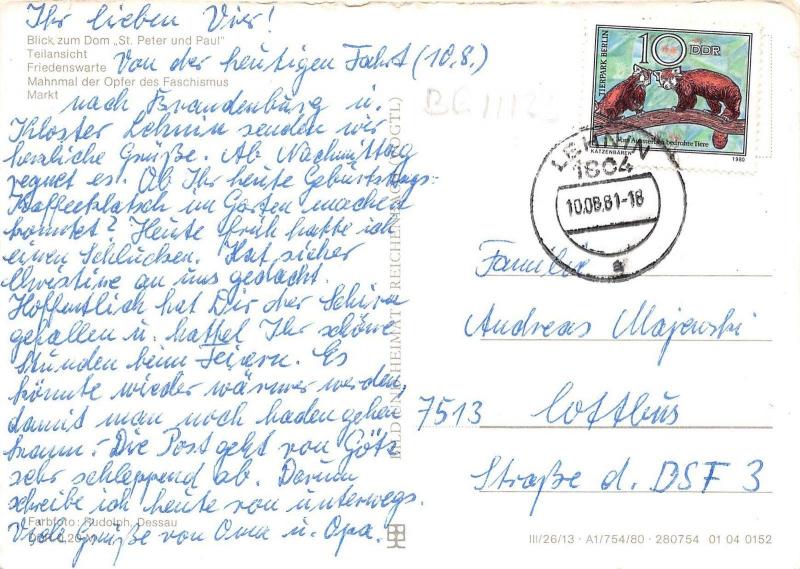 Ihr lieben Vier!
Blick zum Dom „St. Peter und Paul"
Teilansicht
Friedenswarte
Mahnmal der Opfer des Faschismus
Markt
Von der heutigen Fahrt (10.8.)
nach Brandenburg u.
Kloster Lehnin senden wir
herzliche Grüße. Ab Nachmittag
regnet es. Ob Ihr heute Geburtstags-
Kaffeeklatsch im Garten machen
konntet? Heute früh hatte ich
einen Schlucken. Hat sicher
Christine an uns gedacht.
Hoffentlich hat Dir der Schirm
gefallen u. hattet Ihr schöne
Stunden beim Feiern. Es
könnte wieder wärmer werden,
damit man noch baden gehen
kann. Die Post geht von Göts
sehr schleppend ab. Darum
schreibe ich heute von unterwegs.
Viele Grüße von Oma u. Opa.
Farbfoto: Rudolph, Dessau
BILD UND HEIMAT REICHENBACH (VOGTL)
BG 111
TIERPARK BERLIN
10 DDR
Vom Aussterben bedrohte Tiere
KATZENBÄREN
1980
LEHNIN
1804
10.08.81-18
a
Familie
Andreas Majewski
7513 Cottbus
Straße d. DSF 3
III/26/13 · A1/754/80 · 280754 01 04 0152